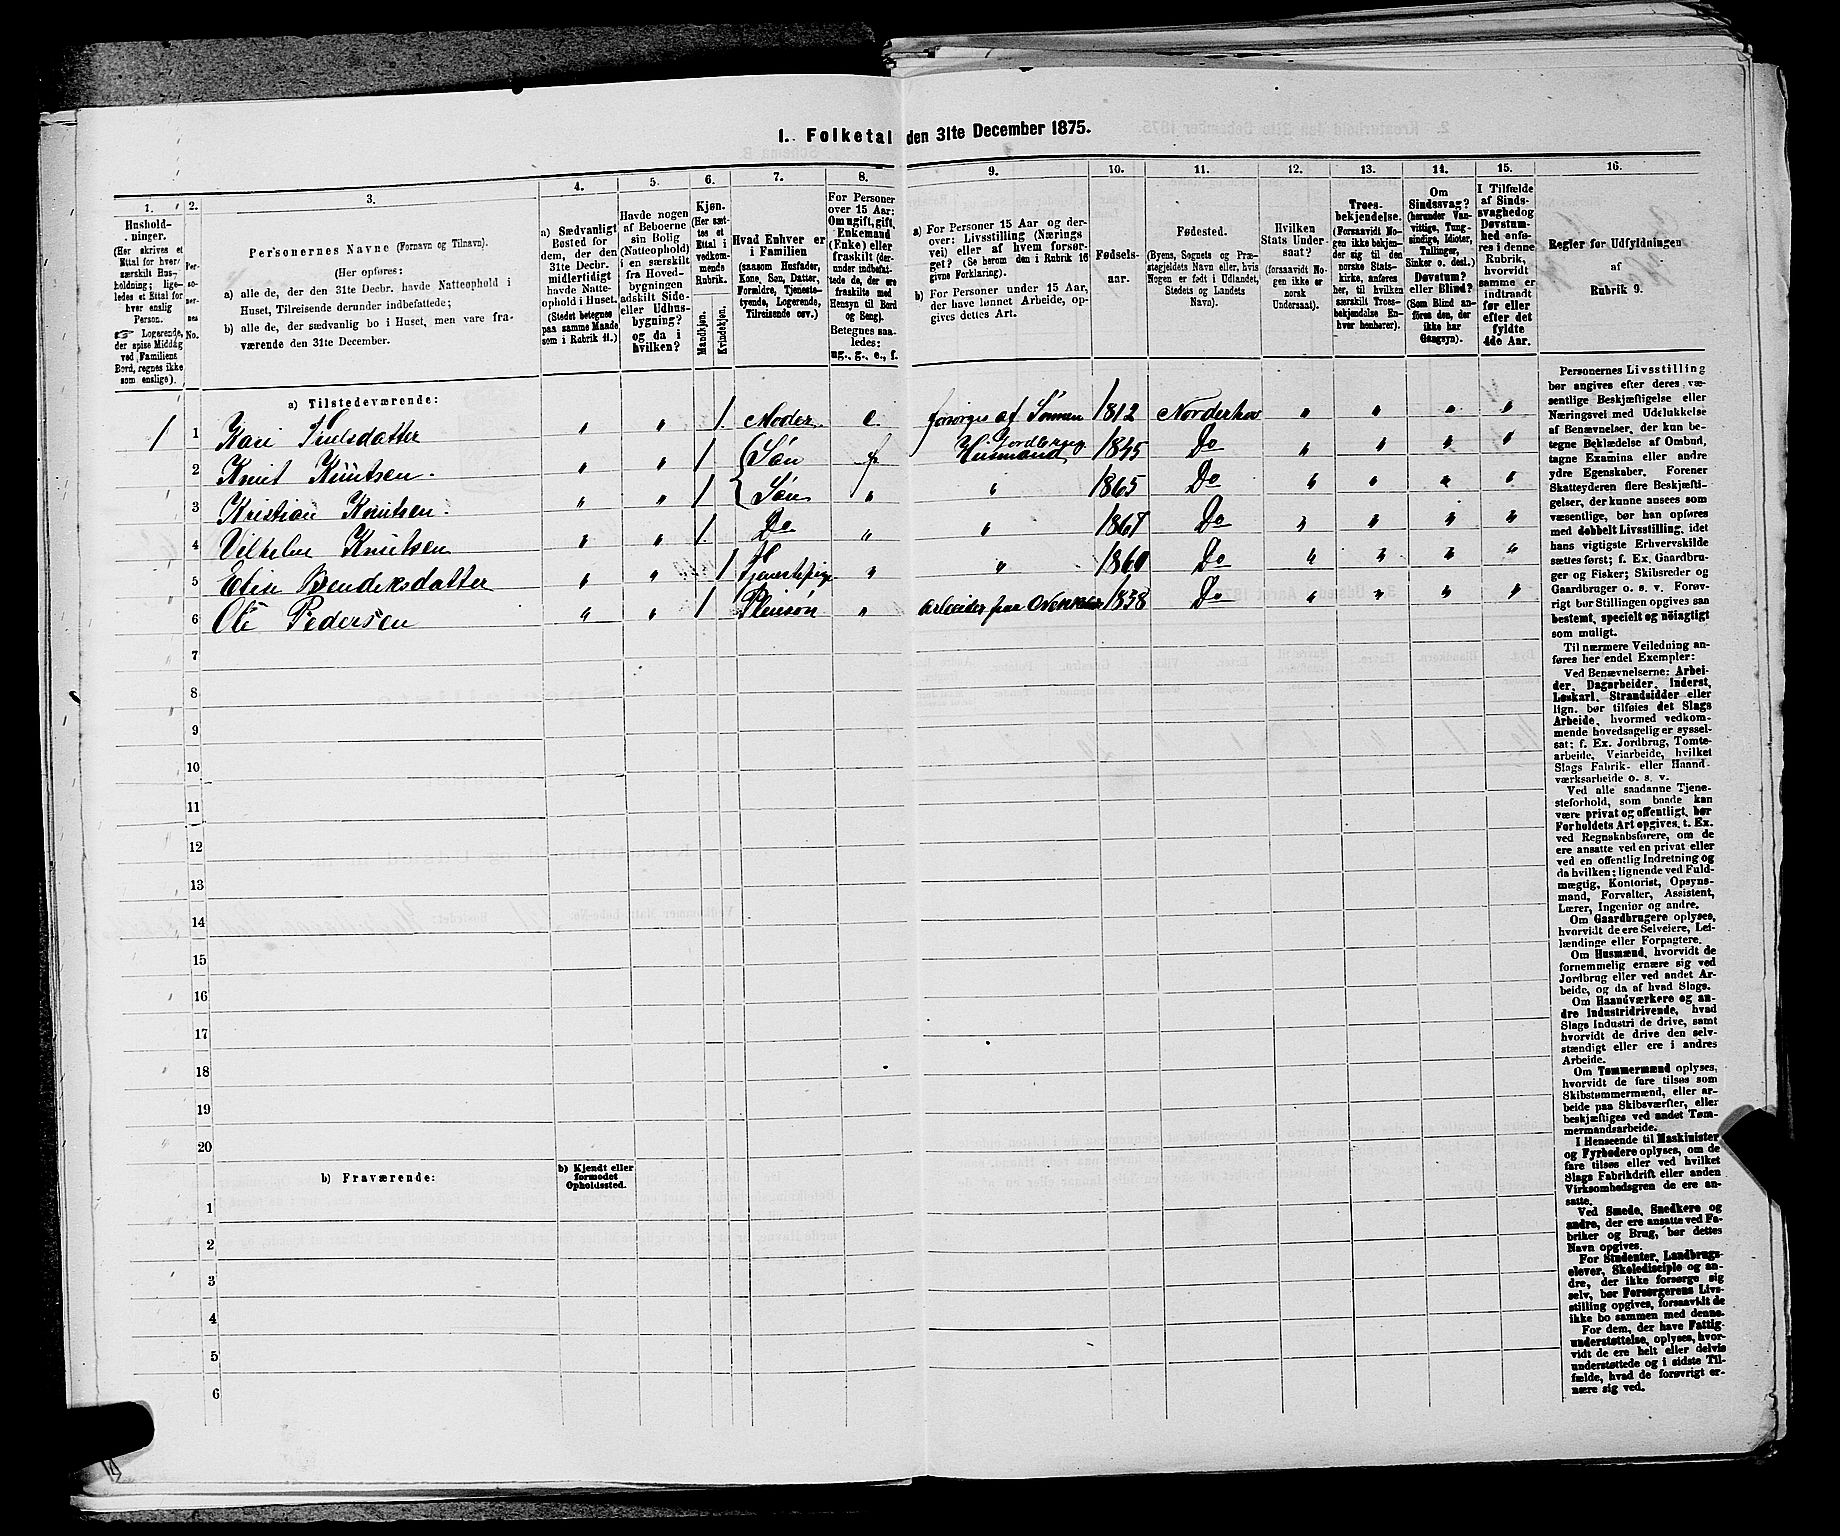 1. Folketal den 31te December 1875.
1. 2. 3. 4. 5. 6. 7. 8. 9. 10. 11. 12. 13. 14. 15. 16.
Hushold-
ninger.
(Her skrives et
Ettal for hver
særskilt Hus-
holdning; lige-
ledes et Ettal for
hver enslig
Person.
☞ Logerende,
der spise Middag
ved Familiens
Bord, regnes ikke
som enslige).
Per-
so-
ner-
nes
No.
Personernes Navne (Fornavn og Tilnavn).
(Her opføres:
a) alle de, der den 31te Decbr. havde Natteophold i
Huset, Tilreisende derunder indbefattede;
b) alle de, der sædvanlig bo i Huset, men vare fra-
værende den 31te December.
a) Sædvanligt
Bosted for
dem, der den
31te Decbr.
midlertidigt
havde Natte-
ophold i Huset.
(Stedet betegnes
paa samme Maade
som i Rubrik 11.)
Havde nogen
af Beboerne
sin Bolig
(Natteophold)
i en særskilt
fra Hoved-
bygningen
adskilt Side-
eller Udhus-
bygning?
og da i
hvilken?
Kjøn.
(Her sæt-
tes et
Ettal i
vedkom-
mende
Rubrik.
Mandkjøn.
Kvindekjøn.
Hvad Enhver er
i Familien
(saasom Husfader,
Kone, Søn, Datter,
Forældre, Tjeneste-
tyende, Logerende,
Tilreisende osv.)
For Personer
over 15 Aar:
Om ugift, gift,
Enkemand
(Enke) eller
fraskilt (der-
under indbefat-
tede de, der ere
fraskilte med
Hensyn til Bord
og Seng).
Betegnes saa-
ledes:
ug., g., e., f.
a) For Personer 15 Aar og der-
over: Livsstilling (Nærings
vei) eller af hvem forsør-
get? (Se herom den i Rubrik 16
givne Forklaring).
b) For Personer under 15 Aar,
der have lønnet Arbeide, op-
gives dettes Art.
Fødsels-
aar.
Fødested.
(Byens, Sognets og Præ-
stegjeldets Navn eller, hvis
Nogen er født i Udlandet,
Stedets og Landets
Navn).
Hvilken
Stats Under-
saat?
(forsaavidt No-
gen ikke er
norsk
Undersaat).
Troes-
bekjendelse.
(Forsaavidt No-
gen ikke bekjen-
der sig til den
norske Stats-
kirke, anføres
her, til hvilken
særskilt Troes-
bekjendelse En-
hver henhører).
Om
Sindssvag?
(herunder Van-
vittige, Tung-
sindige, Idioter,
Tullinger,
Sinker o. desl.)
Døvstum?
eller Blind?
(Som Blind an-
føres den, der
ikke har
Gangsyn).
I Tilfælde
af Sinds-
svaghed og
Døvstum-
hed anfø-
res i denne
Rubrik,
hvorvidt
samme er
indtraadt
før eller
efter det
fyldte
4de Aar.
Regler for Udfyldningen
af
Rubrik 9.
a) Tilstedeværende:
1 1 Kari " " 1. Moder e. forsørges af Sønnen 1812 Norderhov " " " "
2 Knut Knutsen. " " 1 Søn Husmand Jordbrug 1845 Do " " " "
3 Kristian Knutsen. " " 1 Søn " " 1865 Do " " " "
4 Vilhelm Knutsen " " 1. Do " " 1867 Do " " " "
5 Bendiksdatter " " 1 Tjenestepige " " 1860 Do " " " "
6 Ole Pedersen " " 1 Pleiesøn " Arbeider paa 1858 Do " " " "
7
8
9
10
11
12
13
14
15
16
17
18
19
20
b) Fraværende:
b) Kjendt eller
formodet
Opholdssted.
1
2
3
4
5
6
Personernes Livsstilling
bør angives efter deres væ-
sentlige Beskjæftigelse eller
Næringsvei med Udelukkelse
af Benævnelser, der kun be-
tegne Beklædelse af Ombud,
tagne Examina eller andre
ydre Egenskaber. Forener
Skatteyderen flere Beskjæfti-
gelser, der kunne ansees som
væsentlige, bør han opføres
med dobbelt Livsstilling, idet
hans vigtigste Erhvervskilde
sættes først; f. Ex. Gaardbru-
ger og Fisker; Skibsreder og
Gaardbruger o. s. v. Forøv-
rigt bør Stillingen opgives saa
bestemt, specielt og nøiagtigt
som muligt.
Til nærmere Veiledning an-
føres her endel Exempler:
Ved Benævnelserne: Arbei-
der, Dagarbeider, Inderst,
Løskarl, Strandsidder eller
lign. bør tilføies det Slags
Arbeide, hvormed vedkom-
mende hovedsagelig er syssel-
sat; f. Ex. Jordbrug, Tomte-
arbeide, Veiarbeide, hvilket
Slags Fabrik- eller Haand-
værksarbeide o. s. v.
Ved alle saadanne Tjene-
steforhold, som baade kan
være privat og offentligt, bør
Forholdets Art opgives, t. Ex.
ved Regnskabsførere, om de
ere ansatte ved en privat eller
ved en offentlig Indretning og
da hvilken; lignende ved Fuld-
mægtig, Kontorist, Opsyns-
mand, Forvalter, Assistent,
Lærer, Ingeniør og andre.
Om Gaardbrugere oplyses,
hvorvidt de ere Selveiere, Lei-
lændinge eller Forpagtere.
Om Husmænd, hvorvidt de
fornemmelig ernære sig ved
Jordbrug eller ved andet Ar-
beide, og da af hvad Slags.
Om Haandværkere og an-
dre Industridrivende, hvad
Slags Industri de drive, samt
hvorvidt de drive den selv-
stændigt eller ere i andres
Arbeide.
Om Tømmermænd oplyses,
hvorvidt de fare tilsøs som
Skibstømmermænd, eller ar-
beide paa Skibsværfter, eller
beskjæftiges ved andet Tøm-
mermandsarbeide.
I Henseende til Maskinister
og Fyrbødere oplyses, om de
fare tilsøs eller ved hvilket
Slags Fabrikdrift eller anden
Virksomhedsgren de ere an-
satte.
Ved Smede, Snedkere og
andre, der ere ansatte ved Fa-
briker og Brug, bør dettes
Navn opgives.
For Studenter, Landbrugs-
elever, Skoledisciple og an-
dre, der ikke forsørge sig
selv, bør Forsørgerens Livs-
stilling opgives, forsaavidt de
ikke bo sammen med denne.
For dem, der have Fattig-
understøttelse, oplyses, hvor-
vidt de ere helt eller delvis
understøttede og i sidste Til-
fælde, hvad de forøvrigt er-
nære sig ved.